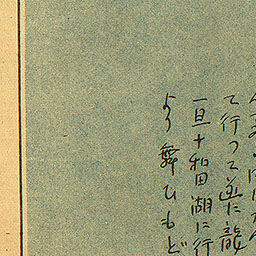 て行つて逆に龍
一旦十和田湖に行
より舞ひもど